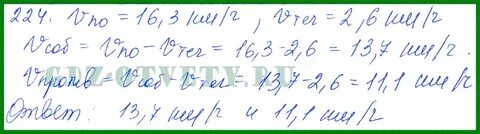 224. Vпо = 16,3 км/г, Vтеч = 2,6 км/г
Vсоб = Vпо – Vтеч = 16,3 – 2,6 = 13,7 км/г.
GDZ-OTVETY.RU
Vпротив = Vсоб – Vтеч = 13,7 – 2,6 = 11,1 км/г
Ответ: 13,7 км/г и 11,1 км/г